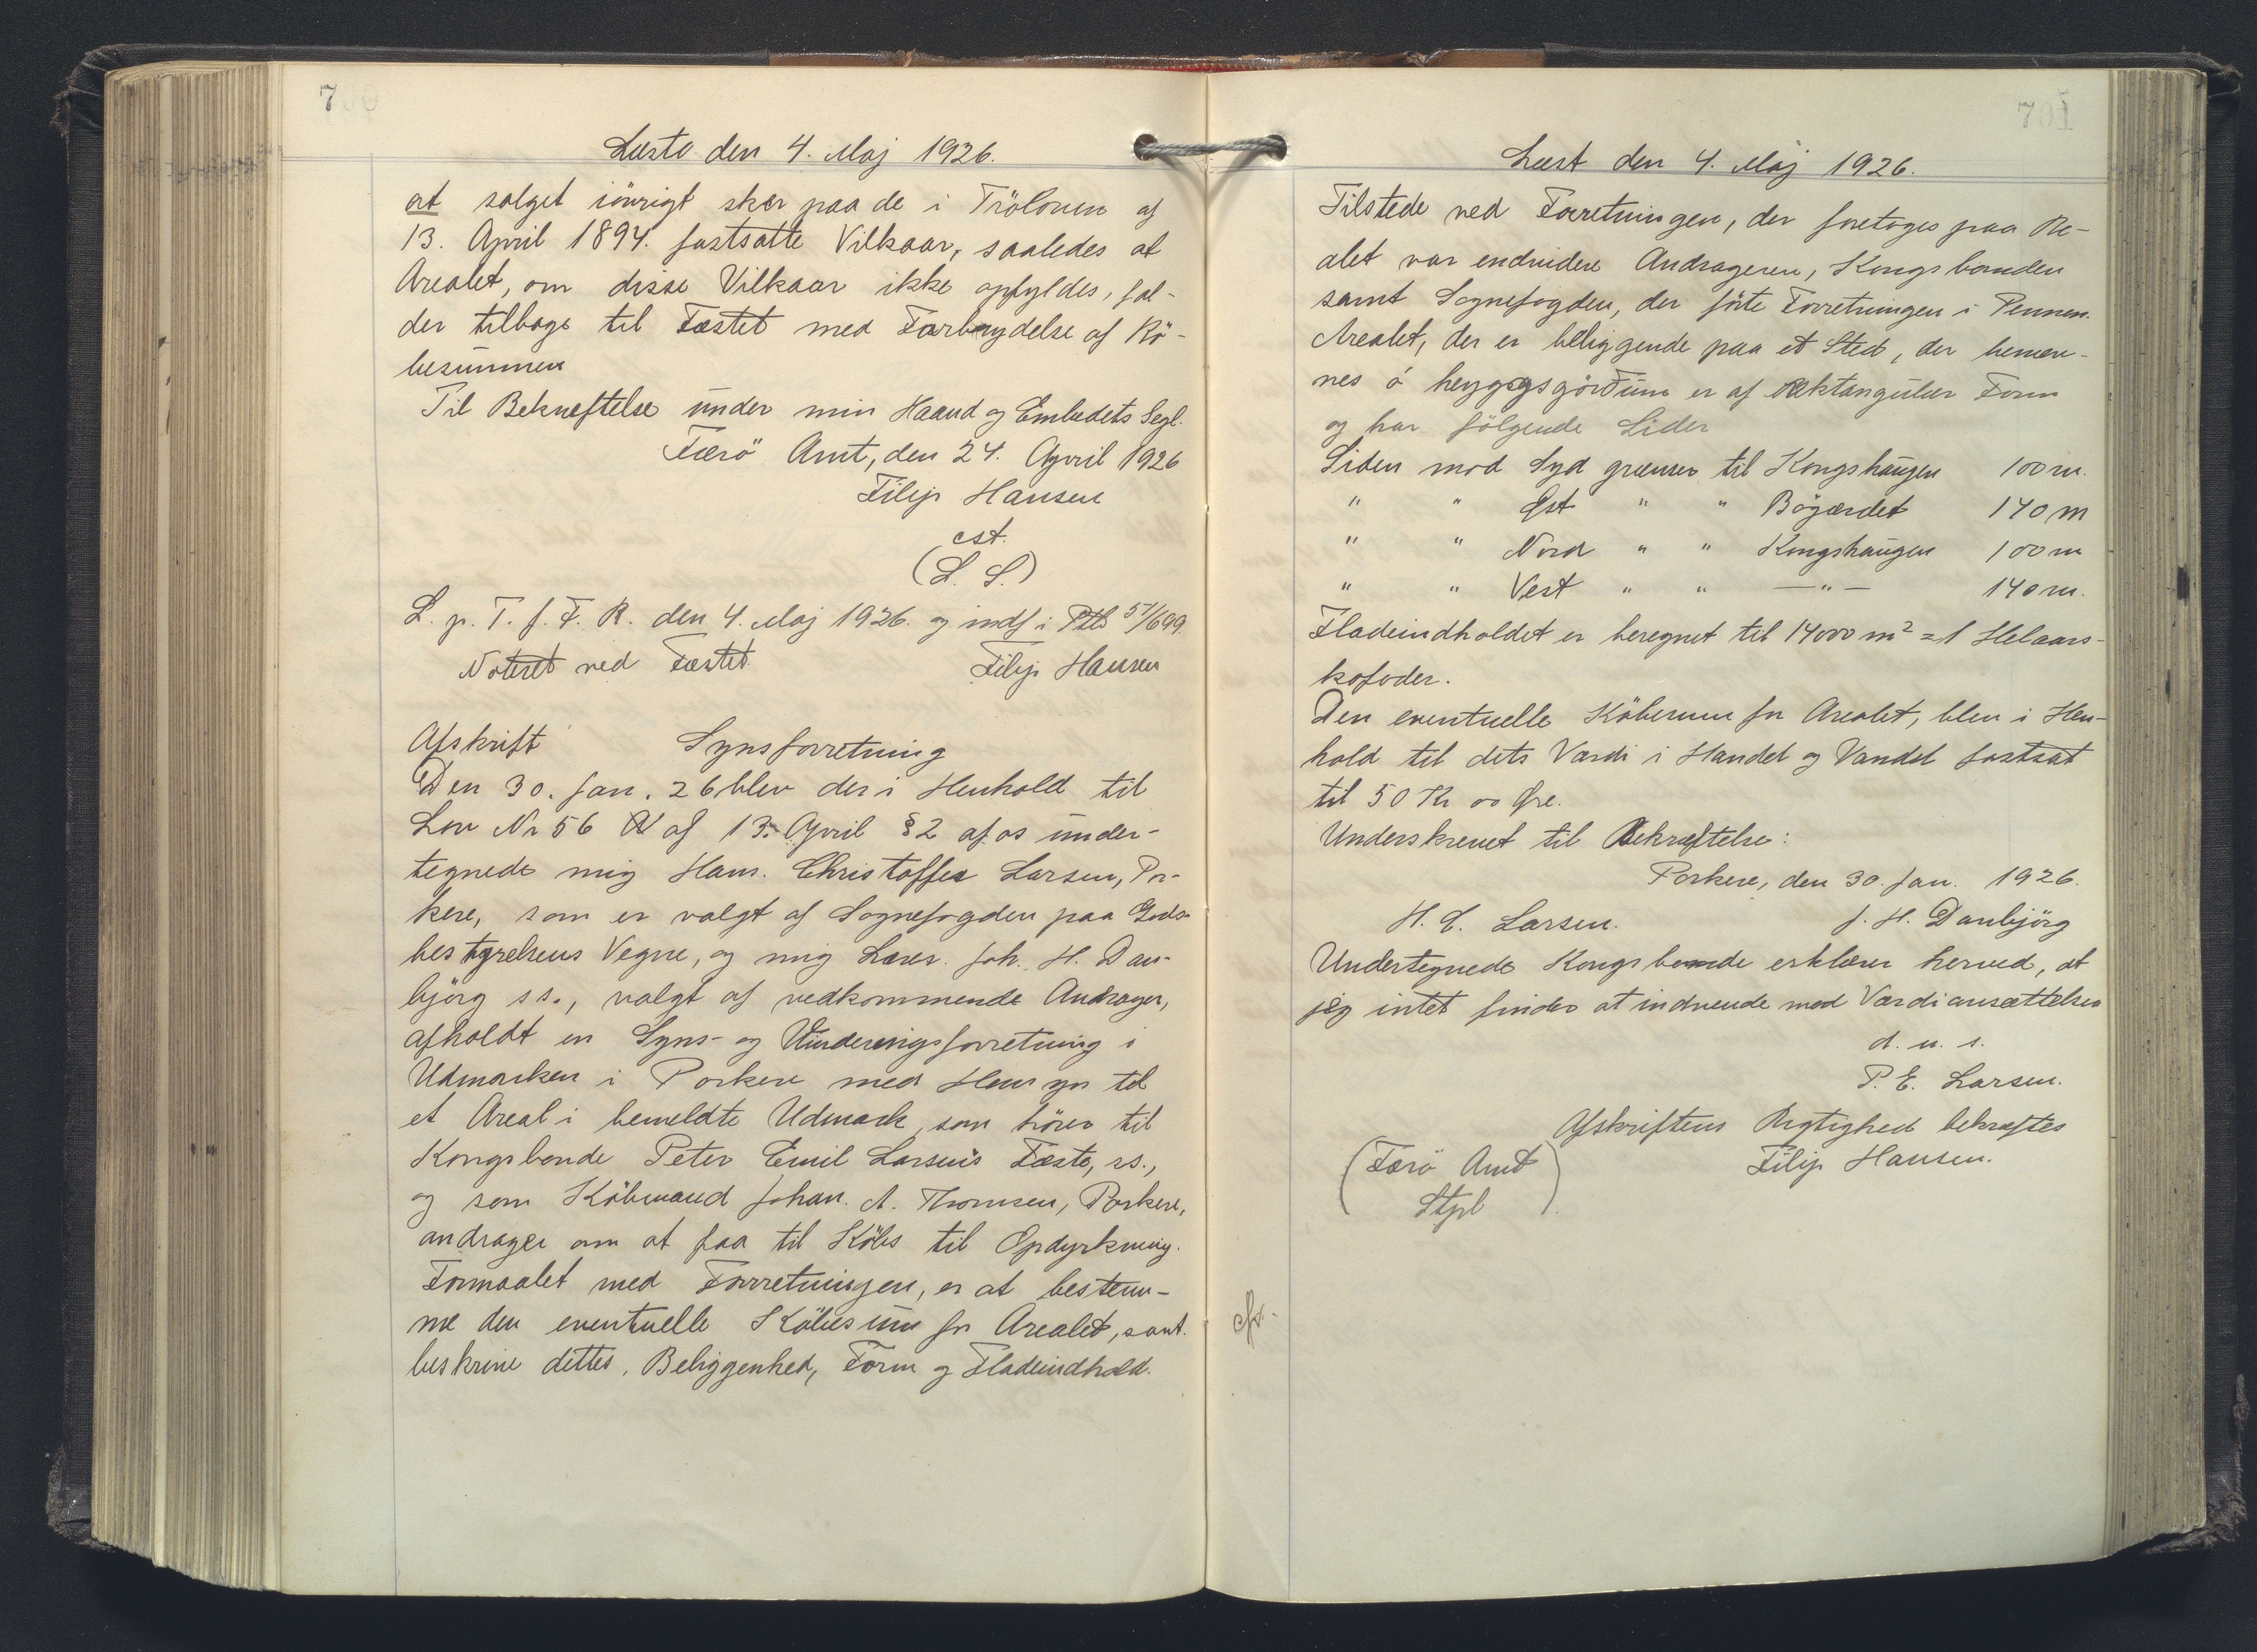 700
Læste den 4. Maj 1926.
at salget iövrigt sker paa de i Tröloven af
13. April 1894. fastsatte Vilkaar, saaledes at
Arealet, om disse Vilkaar ikke opfyldes, fal-
der tilbage til Fæstet med Forbrydelse af Kö-
besummen
Til Bekræftelse under min Haand og Embedets Segl.
Færö Amt, den 24. April 1926
Filip Hansen
cst.
(L. S.)
L. p. T. f. F. R. den 4. Maj 1926. og indf i Ptb 57/699.
Noteret ved Fæstet. Filip Hansen
Afskrift Synsforretning
Den 30. Jan. 26 blev der i Henhold til
Lov Nr 56 af 13. April § 2 af os under-
tegnede mig Hans. Christoffer Larsen, Por-
kere, som er valgt af Sognefogden paa Gods-
bestyrelsens Vegne, og mig Lærer. Joh. H. Dan-
björg ss., valgt af vedkommende Andrager,
afholdt en Syns- og Vurderingsforretning i
Udmarken i Porkere med Hensyn til
et Areal i bemeldte Udmark, som hörer til
Kongsbonde Peter Emil Larsens Fæste, ss.,
og som Köbmand Johan. A. Thomsen, Porkere,
andrager om at faa til Köbs til Opdyrkning.
Formaalet med Forretningen, er at bestem-
me den eventuelle Köbesum for Arealet, samt.
beskrive dettes. Beliggenhed, Form og Fladeindhold.
701
Læst den 4. Maj 1926.
Tilstede ved Forretningen, der foretoges paa Are-
alet var endvidere Andrageren, Kongsbonden
samt Sognefogden, der förte Forretningen i Pennen.
Arealet, der er beliggende paa et Sted, der benæv-
nes á heyggsgörðum er af rektangulær Form
og har fölgende Sider
Siden mod Syd grænser til Kongshaugen 100 m.
" " Öst " " Bögærdet 140 m
" " Nord " " Kongshaugen 100 m
" " Vest " " —"— 140 m.
Fladeindholdet er beregnet til 14000 m² = 1 Helaars-
kofoder.
Den eventuelle Köbesum for Arealet, blev i Hen-
hold til dets Værdi i Handel og Vandel fastsat
til 50 Kr 00 Øre.
Underskrevet til Bekræftelse:
Porkere, den 30. Jan. 1926.
H. C. Larsen. J. H. Danbjörg
Undertegnede Kongsbonde erklærer herved, at
jeg intet finder at indvende mod Værdiansættelsen
d. u. s.
P. E. Larsen.
Afskriftens Rigtighed bekræftes
(Færö Amt Filip Hansen.
Stpl).
cfr.